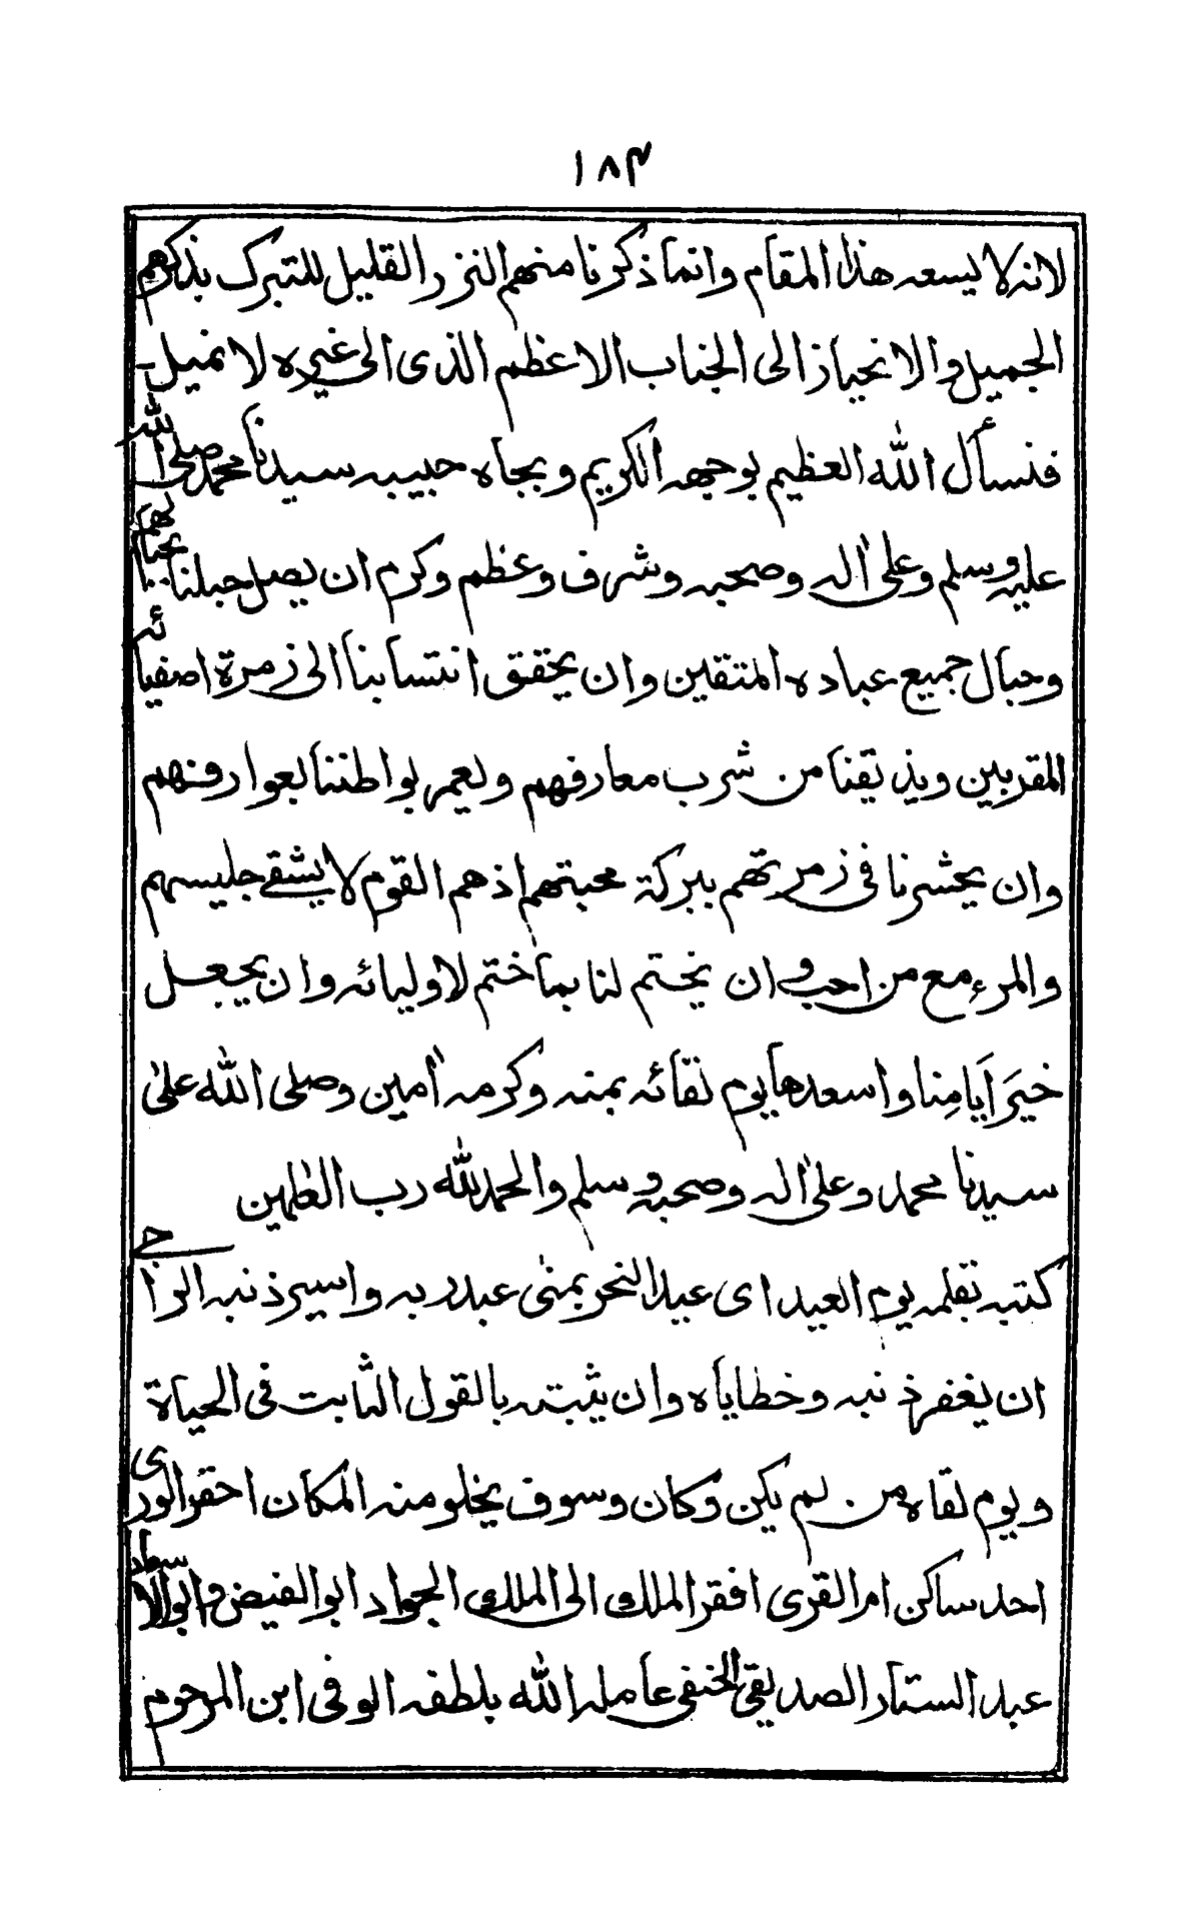 ١٨٣
لانه لا يسعه هذا المقام وانما ذكرنا منهم النزر القليل للتبرك بذكرهم
الجميل والانحياز الى الجناب الاعظم الذى الى غيره لا نميل
فنسأل الله العظيم بوجهه الكريم وبجاه حبيبه سيدنا محمد صلى الله
عليه وسلم وعلى اله وصحبه وشرف وعظم وكرم ان يصل حبلنا بحبالهم
وحبال جميع عباده المتقين وان يحقق انتسابنا الى زمرة اصفيائه
المقربين ويذيقنا من شرب معارفهم ويعمر بواطننا بعوارفهم
وان يحشرنا فى زمرتهم ببركة محبتهم اذ هم القوم لا يشقے جليسهم
والمرء مع من احب وان يختم لنا بما ختم لاوليائه وان يجعل
خيرَ اَيامِنا واسعدها يوم لقائه بمنه وكرمه اٰمين وصلى الله على
سيدنا محمد وعلى اله وصحبه وسلم والحمد لله رب العٰلمين
كتبه بقلمه يوم العيد اى عيد النحر بمنى عبد ربه واسير ذنبه الراجے
ان يغفر ذنبه وخطاياه وان يثبته بالقول الثابت فى الحياة
ويوم لقاه من لم يكن وكان وسوف يخلو منه المكان احقر الورى
احد ساكن ام القرى افقر الملك الى الملك الجواد ابو الفيض وابو الاسعاد
عبد الستار الصديقى الحنفى عامله الله بلطفه الوفى ابن المرحوم